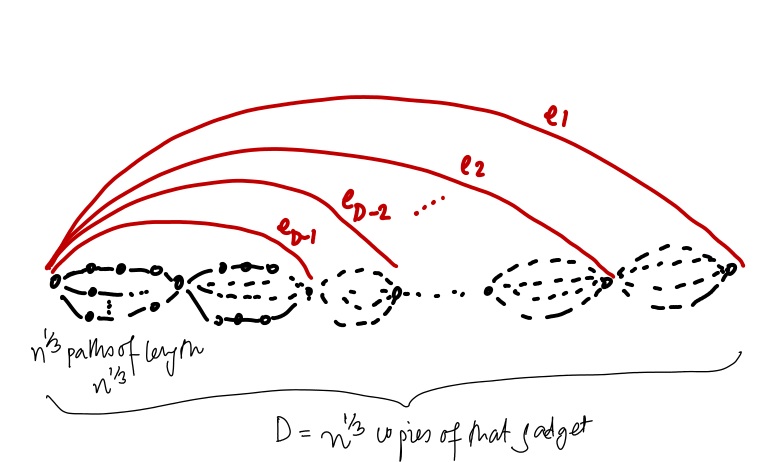 e1
e2
eD-2
eD-1
n^1/3 paths of length
n^1/3
D = n^1/3 copies of that gadget